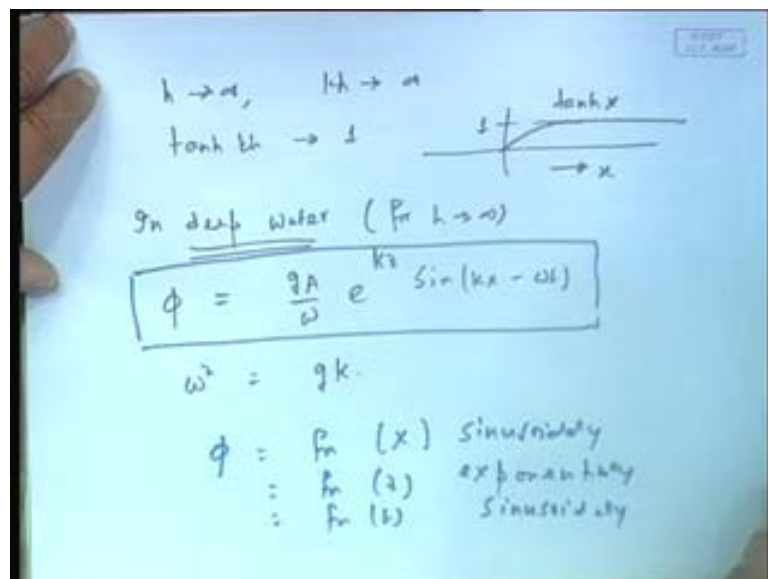 h → ∞, kh → ∞
tanh kh → 1
tanh x
1
→ x
In deep water (for h → ∞)
ϕ = gA/ω e^{kz} sin(kx - ωt)
ω² = gk.
ϕ = fn (x) sinusoidaly
= fn (z) exponentialy
= fn (t) sinusoidaly